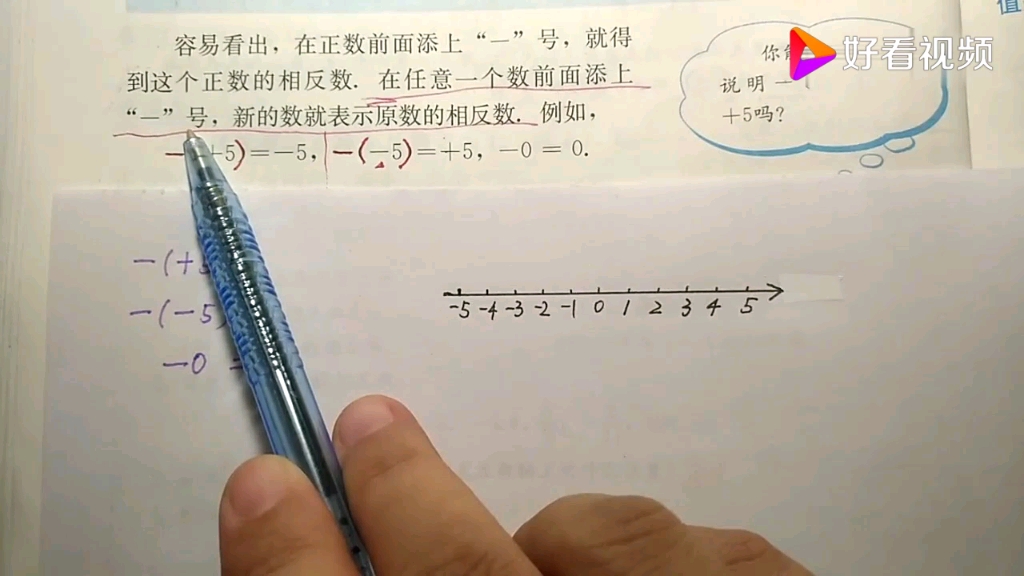 容易看出，在正数前面添上“－”号，就得
到这个正数的相反数．在任意一个数前面添上
“－”号，新的数就表示原数的相反数．例如，
+5)＝－5，－(－5)＝＋5，－0＝0．
你
说明－
＋5吗？
好看视频
值
－(＋
－(－5
－0 =
-5 -4 -3 -2 -1 0 1 2 3 4 5